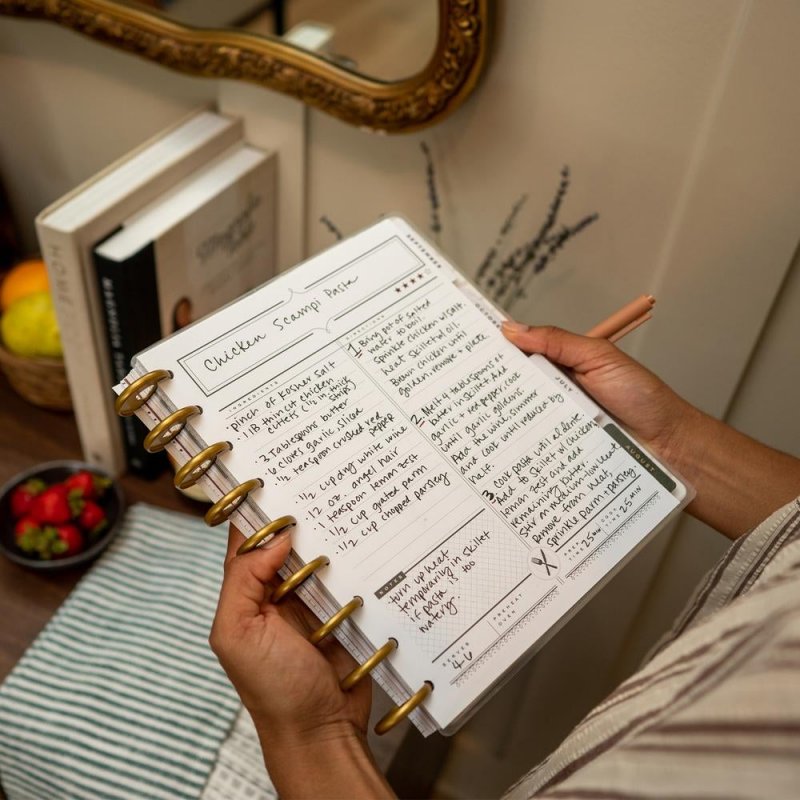 HOME
MAGNOLIA TABLE
Chicken Scampi Pasta
INGREDIENTS
· Pinch of kosher salt
· 1 lB thin cut chicken
cutlets (1/2 in thick
strips)
· 3 Tablespoons butter
· 6 cloves garlic sliced
· 1/2 teaspoon crushed red
pepper
· 1/2 cup dry white wine
· 12 oz. angel hair
· 1 teaspoon lemon zest
· 1/2 cup grated parm
· 1/2 cup chopped parsley
NOTES
turn up heat
temporarily in skillet
if pasta is too
watery.
SERVES
4-6
PREHEAT
OVEN
DIRECTIONS
1. Bring pot of salted
water to boil.
Sprinkle chicken w/salt.
heat skillet w/oil.
Brown chicken until
golden. remove + plate
2. Melt 4 tablespoons of
butter in skillet. Add
garlic + red pepper. cook
until garlic goldens.
Add the wine. simmer
and cook until reduced by
half.
3. cook pasta until al dente.
Add to skillet w/chicken,
lemon zest and add
remaining butter.
Stir on medium-low heat.
Remove from heat,
sprinkle parm + parsley.
TIME 25 min
TIME 25 MIN
SEPTEMBER
OCTOBER
JULY
AUGUST